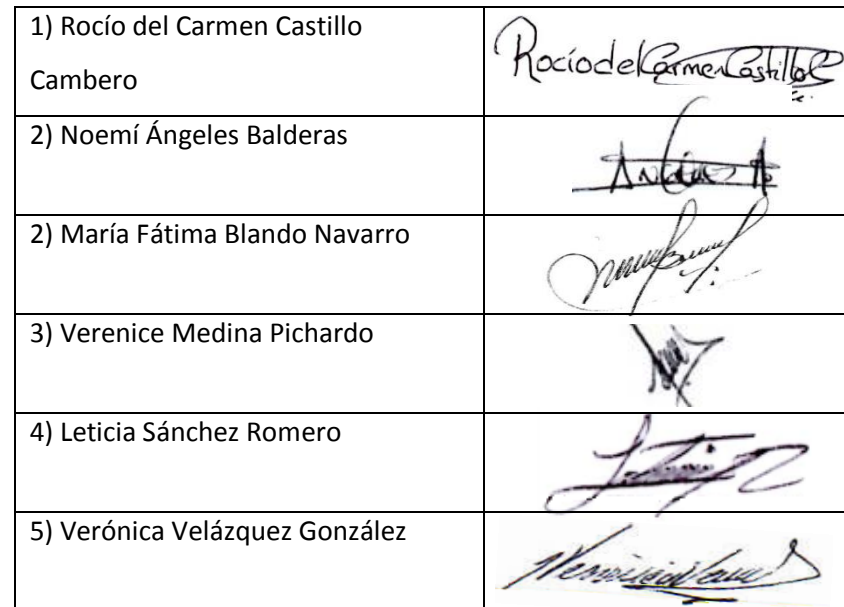 1) Rocío del Carmen Castillo
Cambero
Rocío del Carmen Castillo C
2) Noemí Ángeles Balderas
2) María Fátima Blando Navarro
3) Verenice Medina Pichardo
4) Leticia Sánchez Romero
5) Verónica Velázquez González